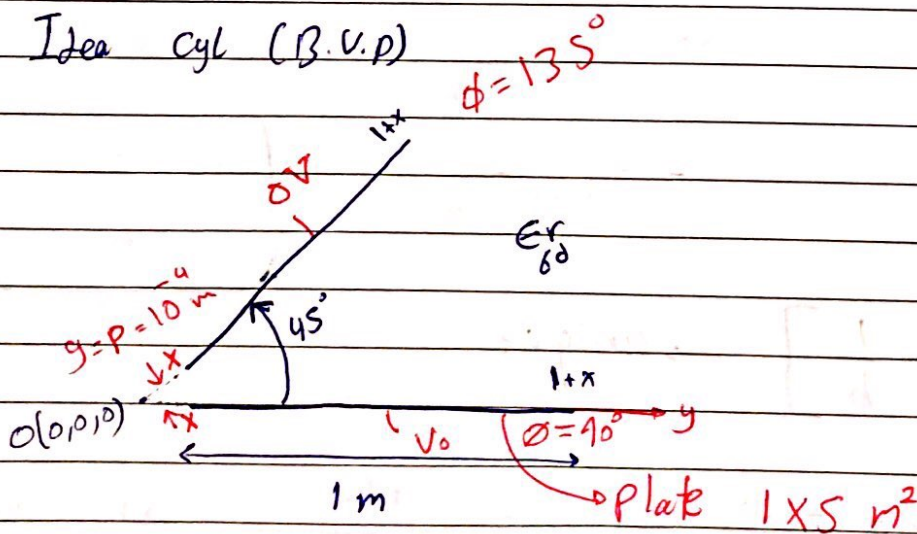 Idea Cyl (B.V.P)
φ=135°
1+x
0V
εr
6d
y=ρ=10⁻⁴ m
45°
x
1+x
O(0,0,0)
x
V₀
Ø=90°
y
1 m
Plate 1x5 m²